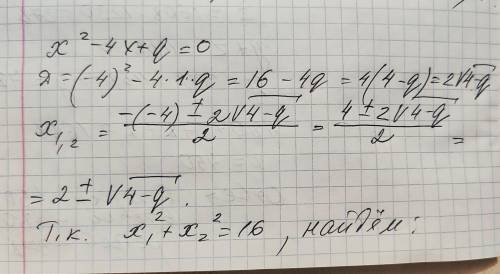 x² - 4x + q = 0
D = (-4)² - 4·1·q = 16 - 4q = 4(4-q) = 2√4-q
x₁,₂ = -(-4) ± 2√4-q / 2 = 4 ± 2√4-q / 2 =
= 2 ± √4-q.
Т.к. x₁² + x₂² = 16, найдём: